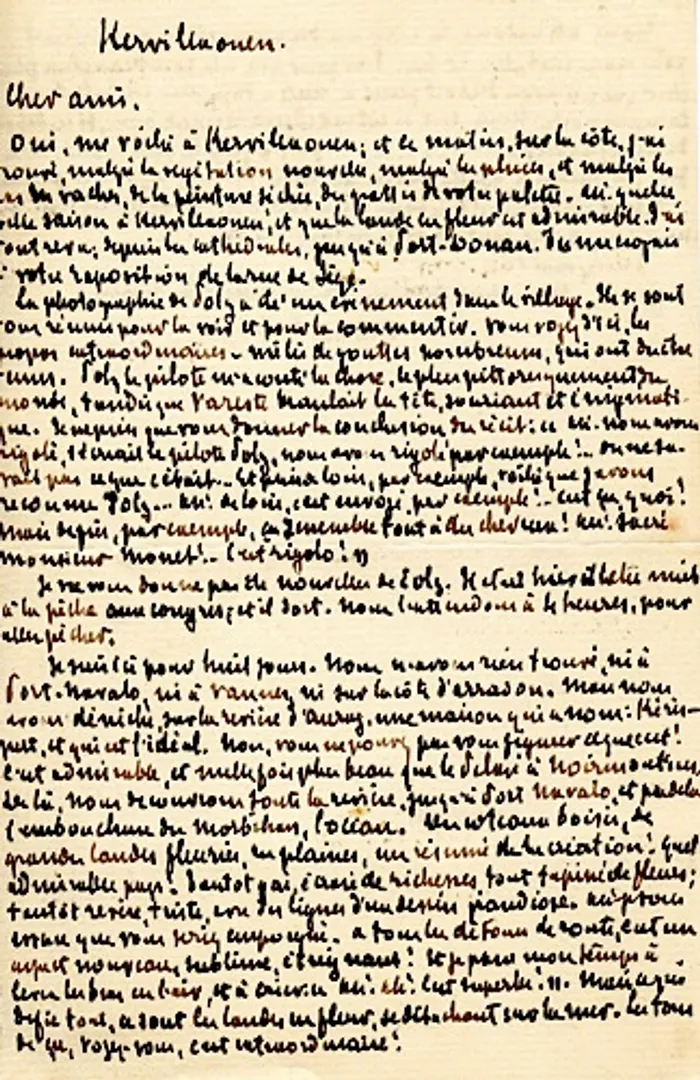 Kervilhouen.
Cher ami.
Oui, me voilà à Kervilhouen; et ce matin, sur la côte, j'ai
trouvé, malgré la végétation nouvelle, malgré les pluies, et malgré les
de vaches, de la peinture séchée, du grattis de votre palette. Ah! quelle
belle saison à Kervilhouen! et que la lande en fleur est admirable. J'ai
tout revu; depuis les cathédrales, jusqu'à Port-Donan. Je me croyais
à votre exposition de la rue de Sèze.
La photographie de Poly a été un évènement dans le village. Ils se sont
tous réunis pour la voir et pour la commenter. Vous voyez d'ici, les
propos extraordinaires - mêlés de gouttes nombreuses, qui ont du être
tenus. Poly le pilote m'a conté la chose, le plus pittoresquement du
monde, tandis que Vareste branlait la tête, souriant et énigmati-
que. Je ne puis que vous donner la conclusion du récit: ce Ah! nous avons
rigolé, s'écriait le pilote Poly, nous avons rigolé par exemple!.. on ne sa-
vait pas ce que c'était... Et puis de loin, par exemple, voilà que j'avons
reconnu Poly... Ah! de loin, c'est envoyé par exemple!.. c'est ça, quoi!
mais de près, par exemple, ça ensemble tout à du cheveux! Ah! sacré
monsieur Monet!.. C'est rigolo! »
Je ne vous donne pas de nouvelles de Poly. Il est
à la pêche aux congres; et il dort. Nous l'attendons à heures, pour
aller pêcher.
Je suis ici pour huit jours. Nous n'avons rien trouvé, ni à
Port-Navalo, ni à Vannes, ni sur la côte d'Arradon. Mais nous
avons déniché, sur la rivière d'Auray, une maison qui a nom: Kéris-
pert, et qui est l'idéal. Non, vous ne pouvez pas vous figurer ce que c'est!
C'est admirable, et mille fois plus beau que le Pelavé à Noirmoutiers.
De là, nous découvrons toute la rivière, jusqu'à Port Navalo, et par delà
l'embouchure du Morbihan, l'océan. Des coteaux boisés, de
grandes landes fleuries, des plaines, un résumé de la création! Quel
admirable pays! Tantôt gai, écrasé de richesses, tout tapissé de fleurs;
tantôt sévère, triste, avec des lignes d'un dessin grandiose. Ah! je vous
assure que vous seriez empoigné. A tous les détours de route, c'est un
aspect nouveau, sublime, étreignant! Et je passe mon temps à
lever les bras en l'air, et à crier: « Ah! ah! C'est superbe! ». Mais ce qui
défie tout, ce sont les landes en fleur, se détachant sur la mer. Les tons
de ça, voyez-vous, c'est extraordinaire!